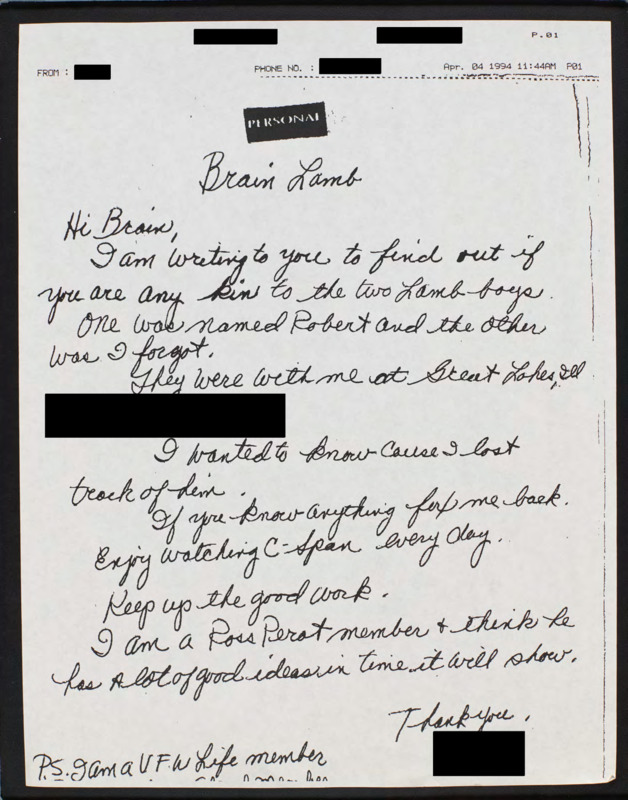 P.01
FROM :
PHONE NO. :
Apr. 04 1994 11:44AM P01
PERSONAL
Brain Lamb
Hi Brain,
I am writing to you to find out if
you are any kin to the two Lamb boys.
One was named Robert and the other
was I forgot.
They were with me at Great Lakes, Ill
I wanted to know cause I lost
track of him.
If you know anything fax me back.
Enjoy watching C-Span every day.
Keep up the good work.
I am a Ross Perot member + think he
has a lot of good ideas in time it will show.
Thank you.
P.S. I am a V.F.W Life member